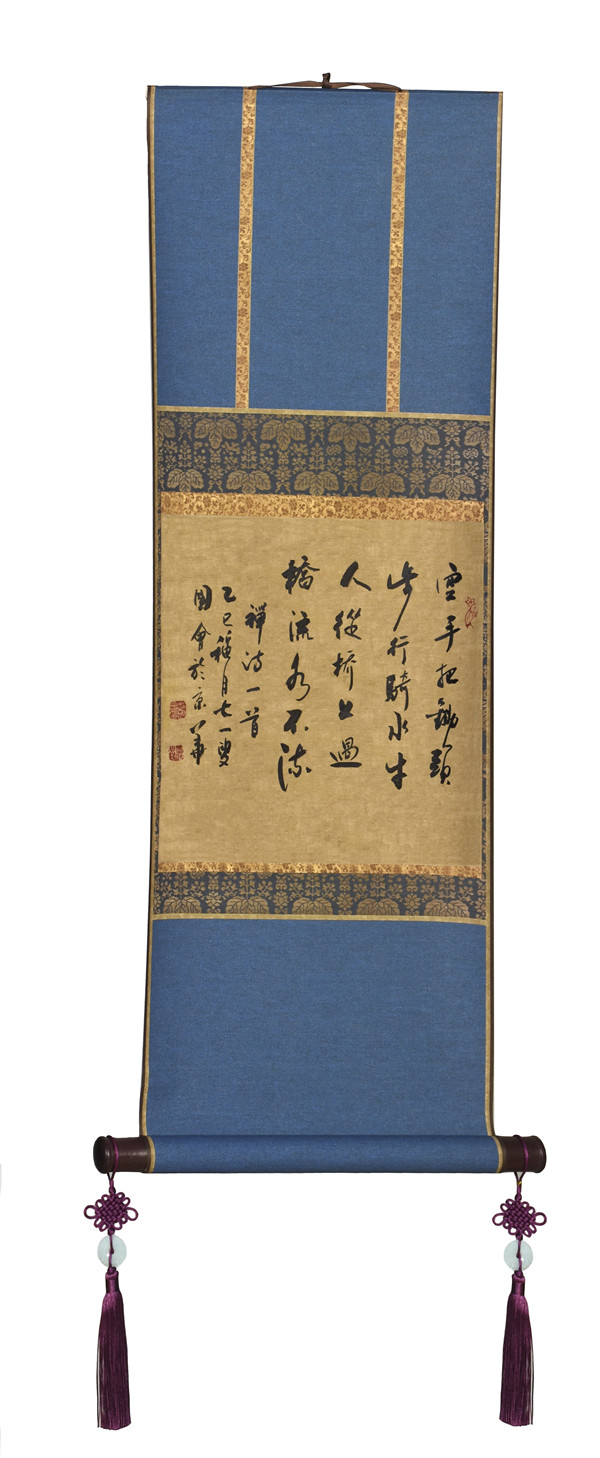 空手把鋤頭
步行騎水牛
人從橋上過
橋流水不流
禪詩一首
乙巳福月七一叟
國會於京華